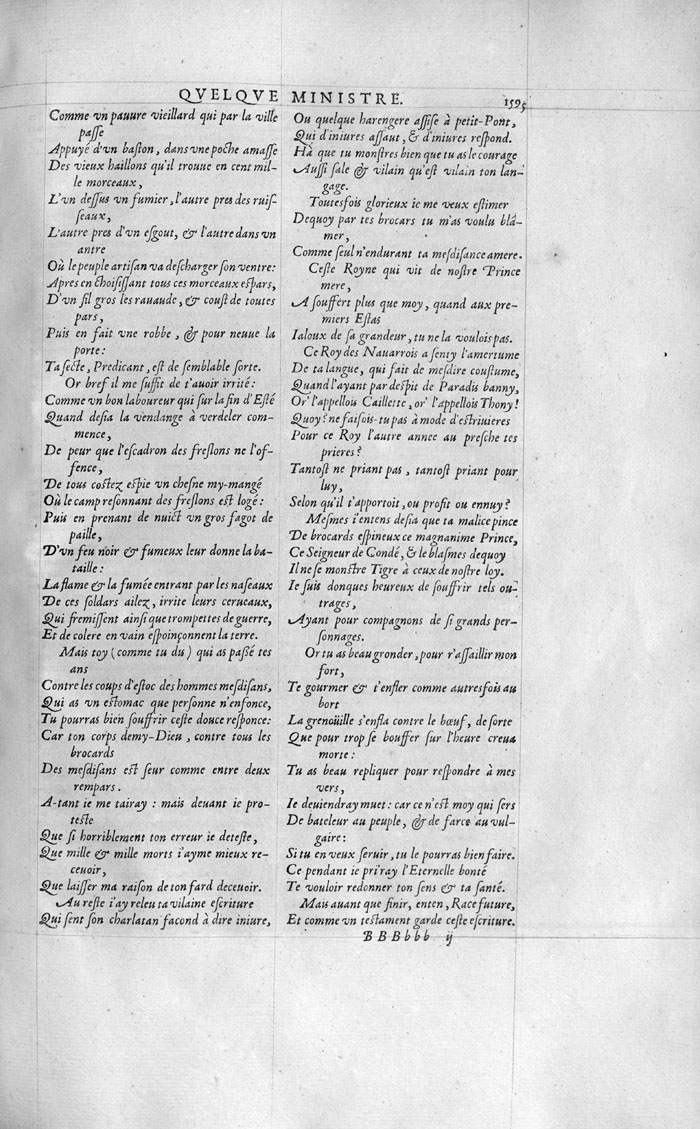 QVELQVE MINISTRE. 1595
Comme vn pauure vieillard qui par la ville
passe
Appuyé d'vn baston, dans vne poche amasse
Des vieux haillons qu'il trouue en cent mil-
le morceaux,
L'vn dessus vn fumier, l'autre pres des ruis-
seaux,
L'autre pres d'vn esgout, & l'autre dans vn
antre
Où le peuple artisan va descharger son ventre:
Apres en choisissant tous ces morceaux espars,
D'vn fil gros les rauaude, & coust de toutes
pars,
Puis en fait vne robbe, & pour neuue la
porte:
Ta secte, Predicant, est de semblable sorte.
Or bref il me suffit de t'auoir irrité:
Comme vn bon laboureur qui sur la fin d'Esté
Quand desia la vendange à verdeler com-
mence,
De peur que l'escadron des freslons ne l'of-
fence,
De tous costez espie vn chesne my-mangé
Où le camp resonnant des freslons est logé:
Puis en prenant de nuict vn gros fagot de
paille,
D'vn feu noir & fumeux leur donne la ba-
taille:
La flame & la fumée entrant par les naseaux
De ces soldars ailez, irrite leurs cerueaux,
Qui fremissent ainsi que trompettes de guerre,
Et de colere en vain espoinçonnent la terre.
Mais toy (comme tu du) qui as passé tes
ans
Contre les coups d'estoc des hommes mesdisans,
Qui as vn estomac que personne n'enfonce,
Tu pourras bien souffrir ceste douce responce:
Car ton corps demy-Dieu, contre tous les
brocards
Des mesdisans est seur comme entre deux
rempars.
A-tant ie me tairay: mais deuant ie pro-
teste
Que si horriblement ton erreur ie deteste,
Que mille & mille morts i'ayme mieux re-
ceuoir,
Que laisser ma raison de ton fard deceuoir.
Au reste i'ay releu ta vilaine escriture
Qui sent son charlatan facond à dire iniure,
Ou quelque harengere assise à petit-Pont,
Qui d'iniures assaut, & d'iniures respond.
Hà que tu monstres bien que tu as le courage
Aussi sale & vilain qu'est vilain ton lan-
gage.
Toutesfois glorieux ie me veux estimer
Dequoy par tes brocars tu m'as voulu blâ-
mer,
Comme seul n'endurant ta mesdisance amere.
Ceste Royne qui vit de nostre Prince
mere,
A souffert plus que moy, quand aux pre-
miers Estas
Ialoux de sa grandeur, tu ne la voulois pas.
Ce Roy des Nauarrois a senty l'amertume
De ta langue, qui fait de mesdire coustume,
Quand l'ayant par despit de Paradis banny,
Or' l'appellois Caillette, or' l'appellois Thony!
Quoy? ne faisois-tu pas à mode d'estriuieres
Pour ce Roy l'autre annee au presche tes
prieres?
Tantost ne priant pas, tantost priant pour
luy,
Selon qu'il t'apportoit, ou profit ou ennuy?
Mesmes i'entens desia que ta malice pince
De brocards espineux ce magnanime Prince,
Ce Seigneur de Condé, & le blasmes dequoy
Il ne se monstre Tigre à ceux de nostre loy.
Ie suis donques heureux de souffrir tels ou-
trages,
Ayant pour compagnons de si grands per-
sonnages.
Or tu as beau gronder, pour r'assaillir mon
fort,
Te gourmer & t'enfler comme autresfois au
bort
La grenoüille s'enfla contre le bœuf, de sorte
Que pour trop se bouffer sur l'heure creua
morte:
Tu as beau repliquer pour respondre à mes
vers,
Ie deuiendray muet: car ce n'est moy qui sers
De bateleur au peuple, & de farce au vul-
gaire:
Si tu en veux seruir, tu le pourras bien faire.
Ce pendant ie pri'ray l'Eternelle bonté
Te vouloir redonner ton sens & ta santé.
Mais auant que finir, enten, Race future,
Et comme vn testament garde ceste escriture.
BBBbbb ij